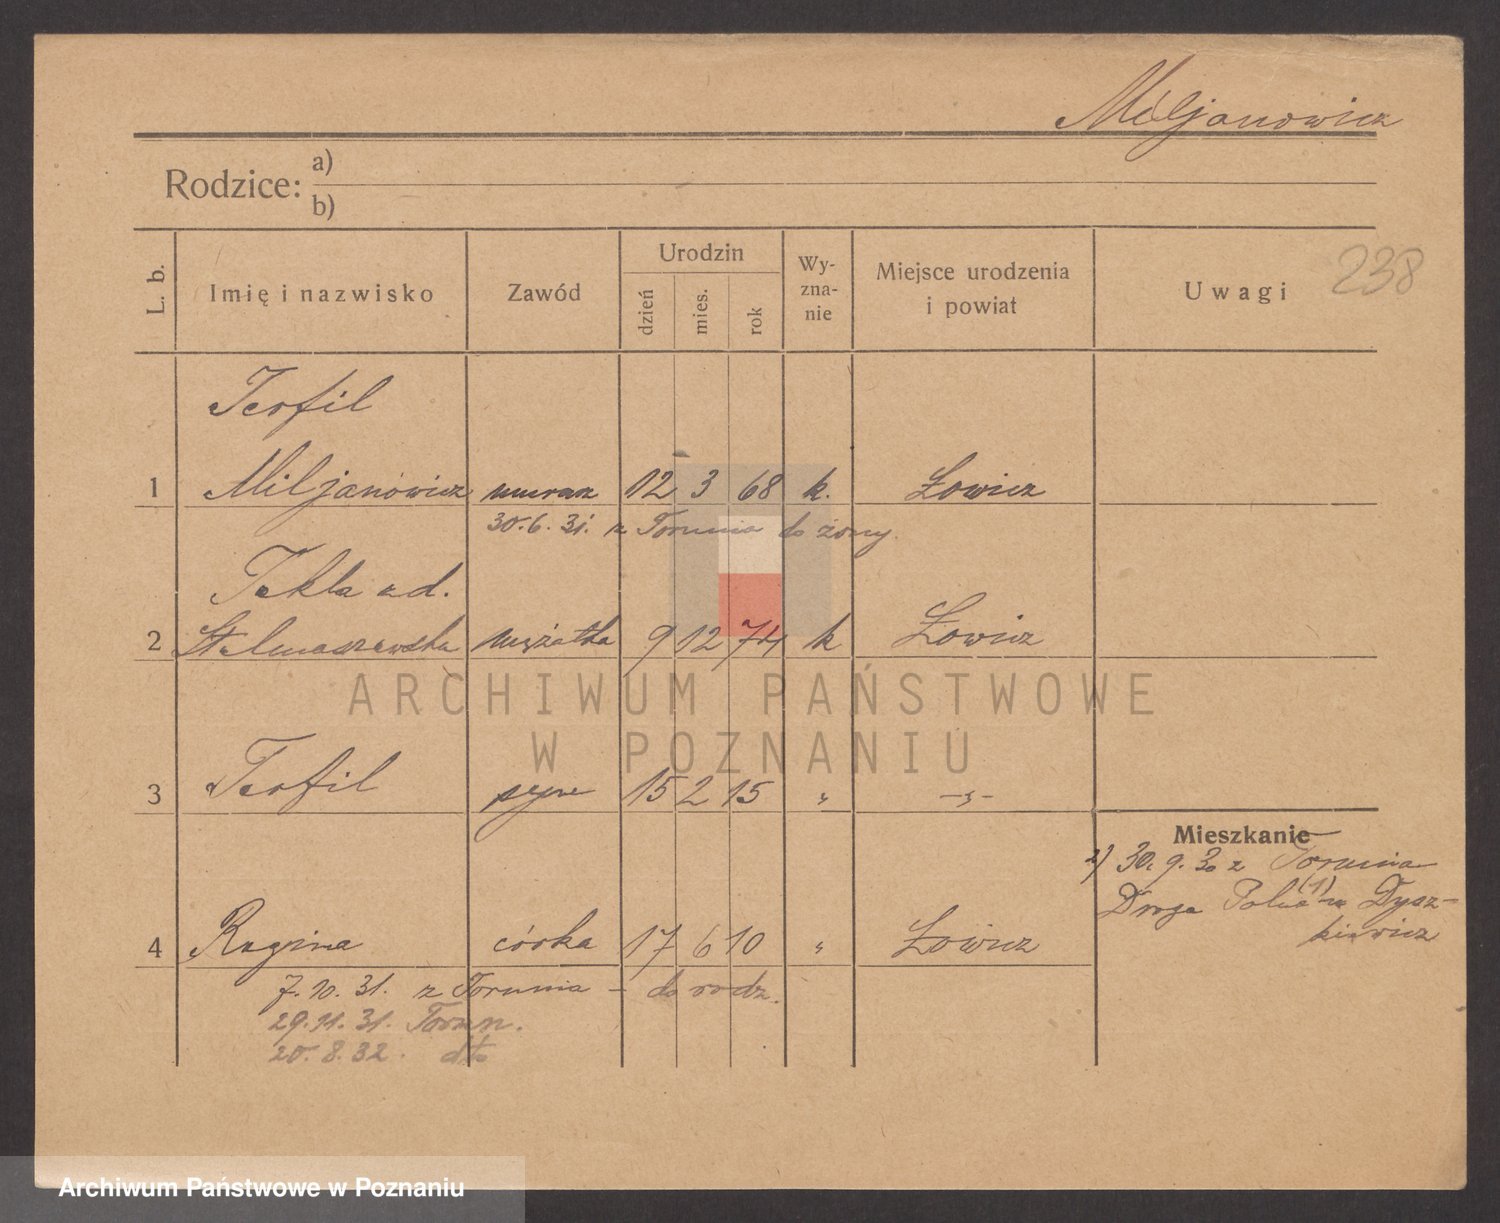 Miljanowicz
Rodzice: a)
b)
238
L. b. Imię i nazwisko Zawód Urodzin dzień mies. rok Wy-zna-nie Miejsce urodzenia i powiat Uwagi
Teofil
1 Miljanowicz murarz 12 3 68 k. Łowicz
30.6.31. z Torunia do żony
Tekla zd.
2 mężatka 9 12 74 k Łowicz
ARCHIWUM PAŃSTWOWE
W POZNANIU
3 Teofil syn 15 2 15 " -"-
Mieszkanie
2) 30.9.30 z Torunia
Droga (1) Dysz-
kiewicz
4 Regina córka 17 6 10 " Łowicz
7.10.31. z Torunia - do rodz.
29.11.31. Toruń.
20.8.32. dto
Archiwum Państwowe w Poznaniu